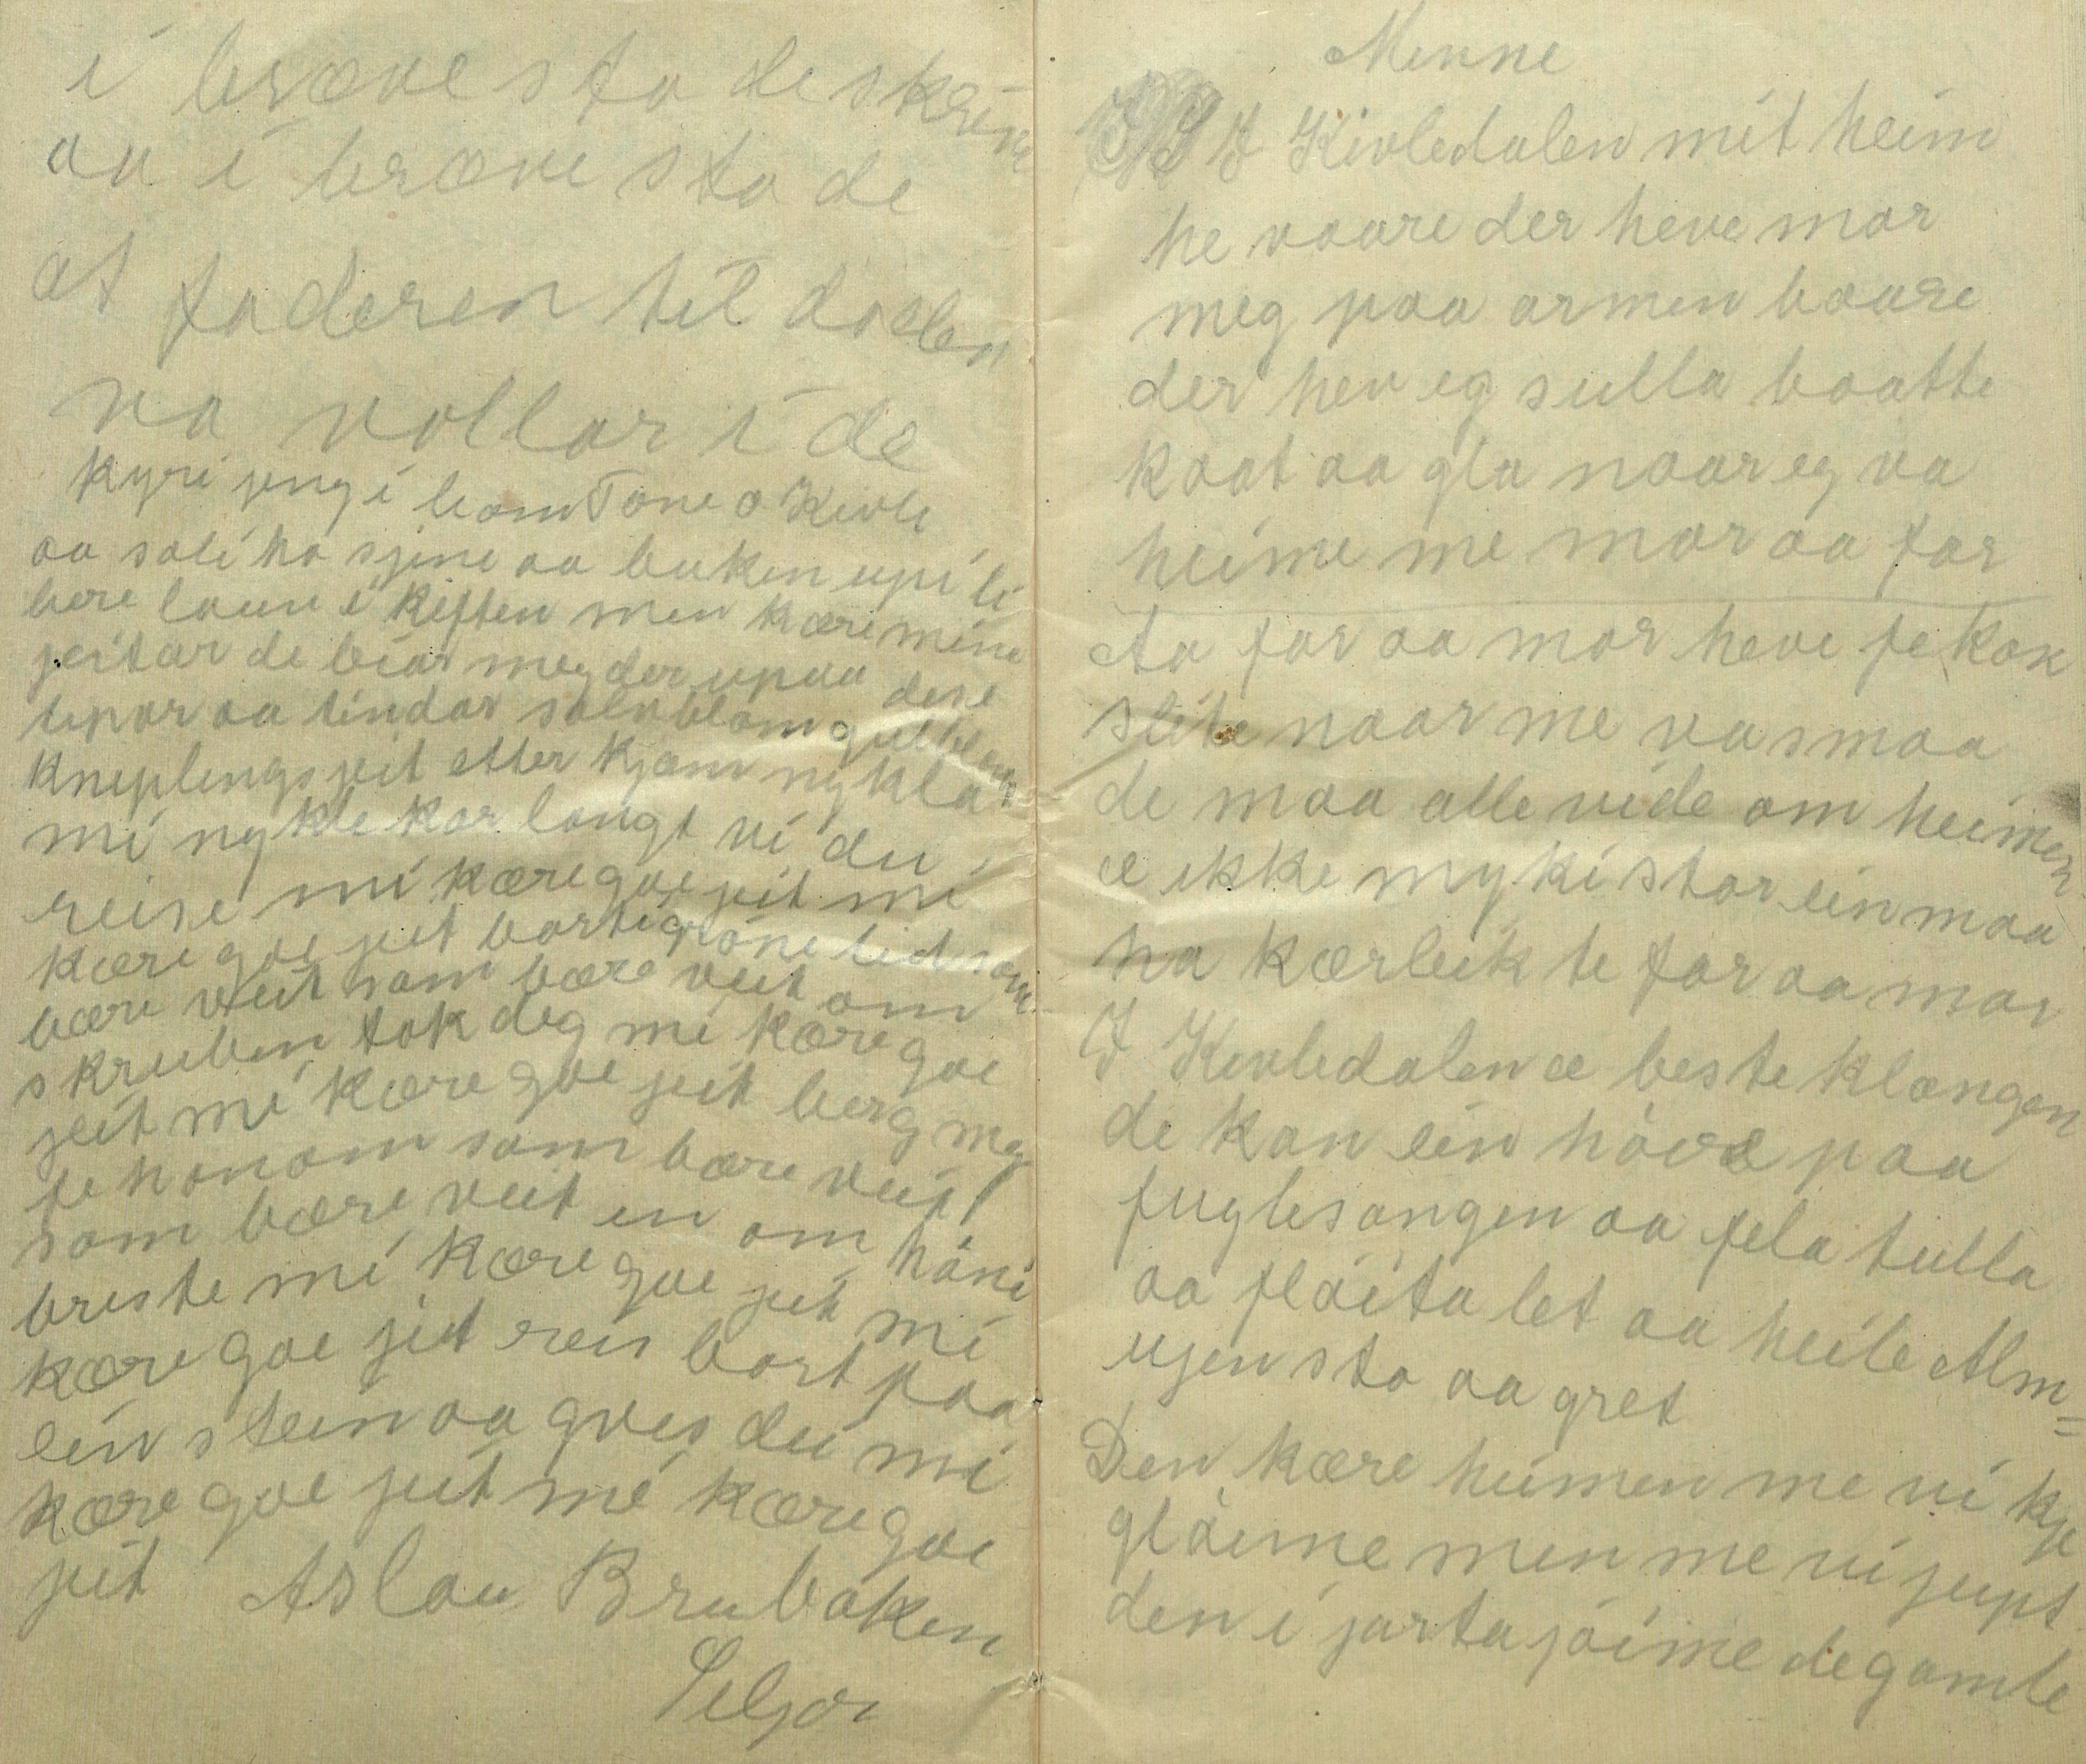 i bræve sto de skrive
aa i bræve sto de
at faderen til doslen
va vollar i de
kyri jeng i bom Tone o Kivle
aa soli ho sjine aa buken upi li
bere loun i kjeften men kære mine
jeitar de biar meg der upaa dese
tipar aa tindar sølvblom gullblom
kneplings jeit etter kjæm nykla
mi nykle kor langt vi du
reise mi kære goe jeit mi
kære goe jeit borti grøne lid som
bære veit som bære veit om
skruben tok deg mi kære goe
jeit mi kære goe jeit berg meg
fe honom som bære veit
som bære veit en om håni
briste mi kære goe jeit mi
kære goe jeit reis bort paa
ein stein aa gvei du mi
kære goe jeit mi kære goe
jeit Aslau Brubaken
Seljor
Minne
I Kivledalen mit heim
he vaare der heve mor
meg paa armen baare
der hev eg sulla baatte
kaat aa gla naar eg va
heime me mor aa far
Aa far aa mor heve fekak
slite naar me va smaa
de maa alle vide om heimen
æ ikke myki stor ein maa
ha kærleik te far aa mor
I Kivledalen æ beste klangen
de kan ein høyre paa
fuglesangen aa fela tulla
aa fløita let aa heile Alm=
ugen sto aa gret
Den kære heimen me vi kje
gløime men me vi jupt
den i jarta jøime de gamle